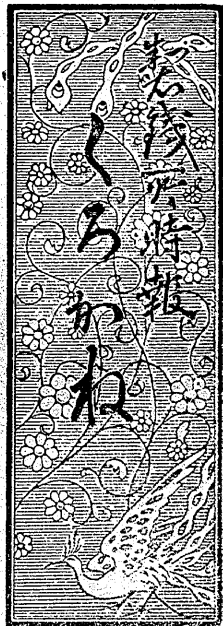 製鐵所時報
くろがね